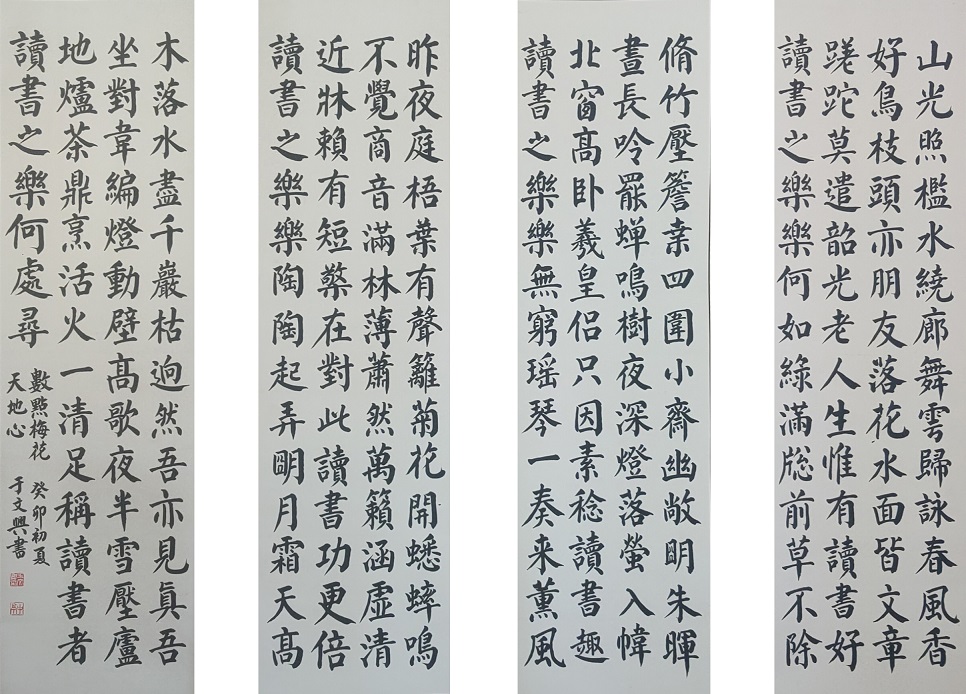 山光照檻水繞廊舞雩歸詠春風香
好鳥枝頭亦朋友落花水面皆文章
蹉跎莫遣韶光老人生惟有讀書好
讀書之樂樂何如綠滿牕前草不除
脩竹壓簷桒四圍小齋幽敞明朱暉
晝長吟罷蟬鳴樹夜深燈落螢入幃
北窗髙卧羲皇侶只因素稔讀書趣
讀書之樂樂無窮瑤琴一奏来薰風
昨夜庭梧葉有聲籬菊花開蟋蟀鳴
不覺商音滿林薄蕭然萬籟涵虛清
近牀賴有短檠在對此讀書功更倍
讀書之樂樂陶陶起弄明月霜天髙
木落水盡千巖枯迥然吾亦見真吾
坐對韋編燈動壁髙歌夜半雪壓廬
地爐茶鼎烹活火一清足稱讀書者
讀書之樂何處尋
數點梅花
天地心
癸卯初夏
于文興書